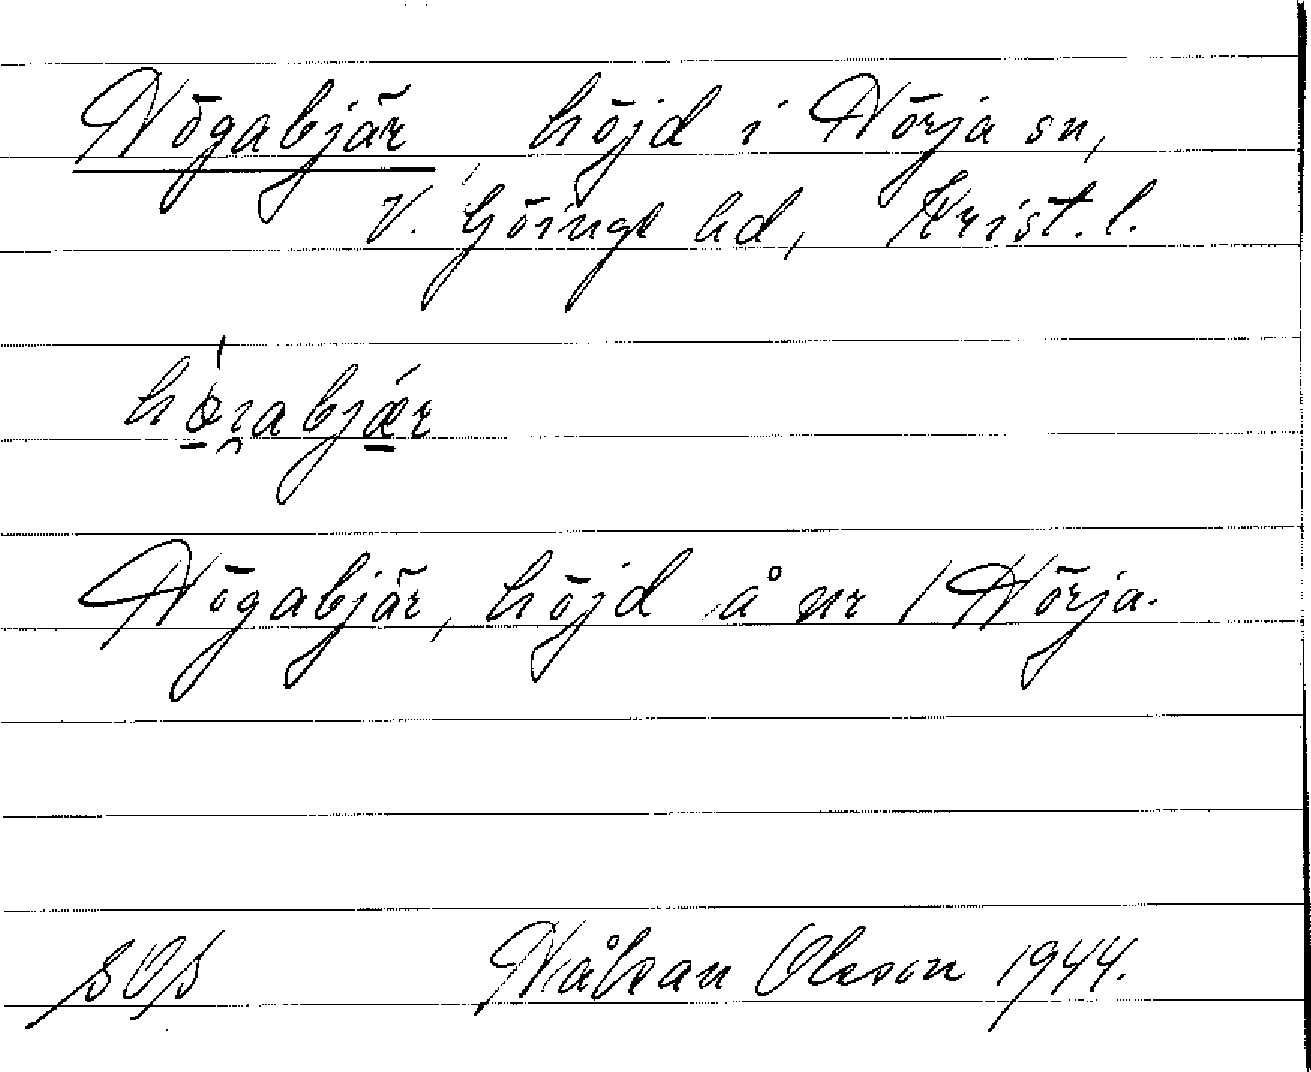 Högabjär, höjd i Hörja sn,
V. Göinge hd, Krist. l.
hǿ̱ʒabjǽ̱r
Högabjär, höjd å nr 1 Hörja.
SOS Håkan Olsson 1944.